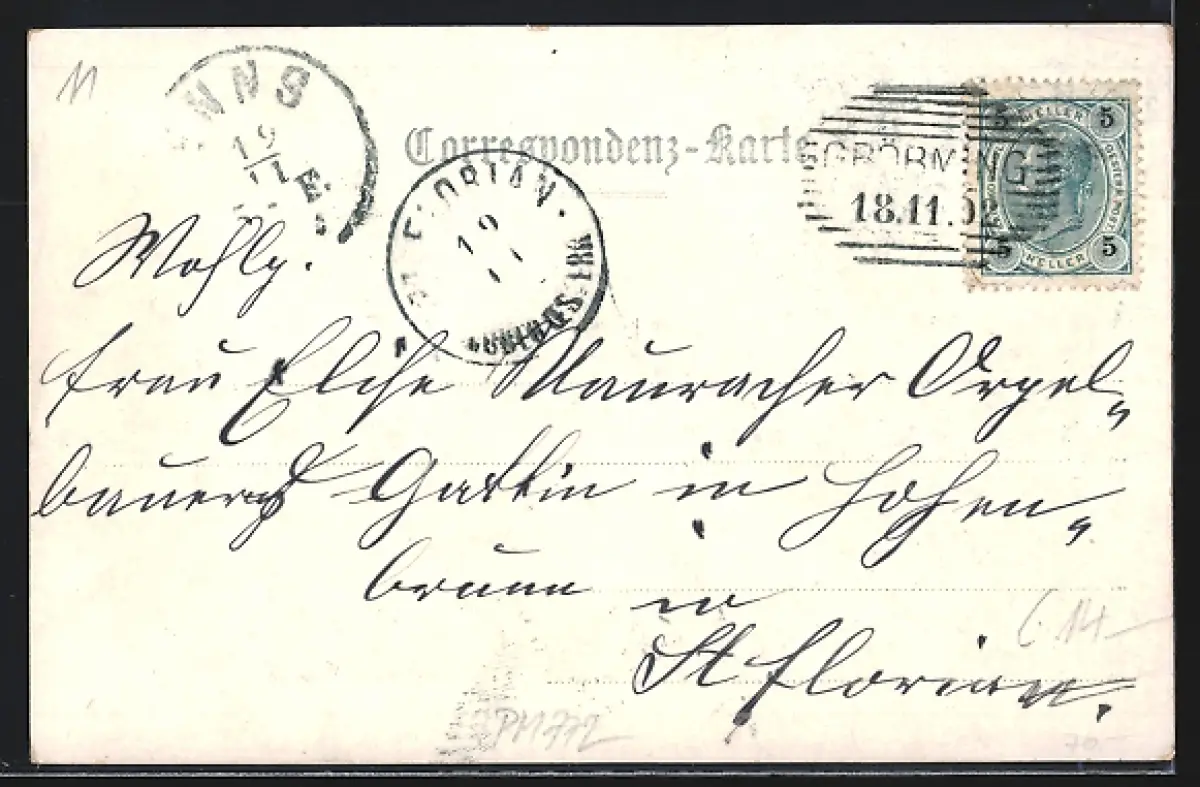 11
ENNS
19
11
E.
Correspondenz-Karte
ST. FLORIAN
19
11
18.11.02
5 HELLER 5
5 HELLER 5
Wohlg.
Frau Elise Mauracher Orgel„
bauers Gattin in Hohen„
brunn in
St Florian.
C 14
PM 772
70.-